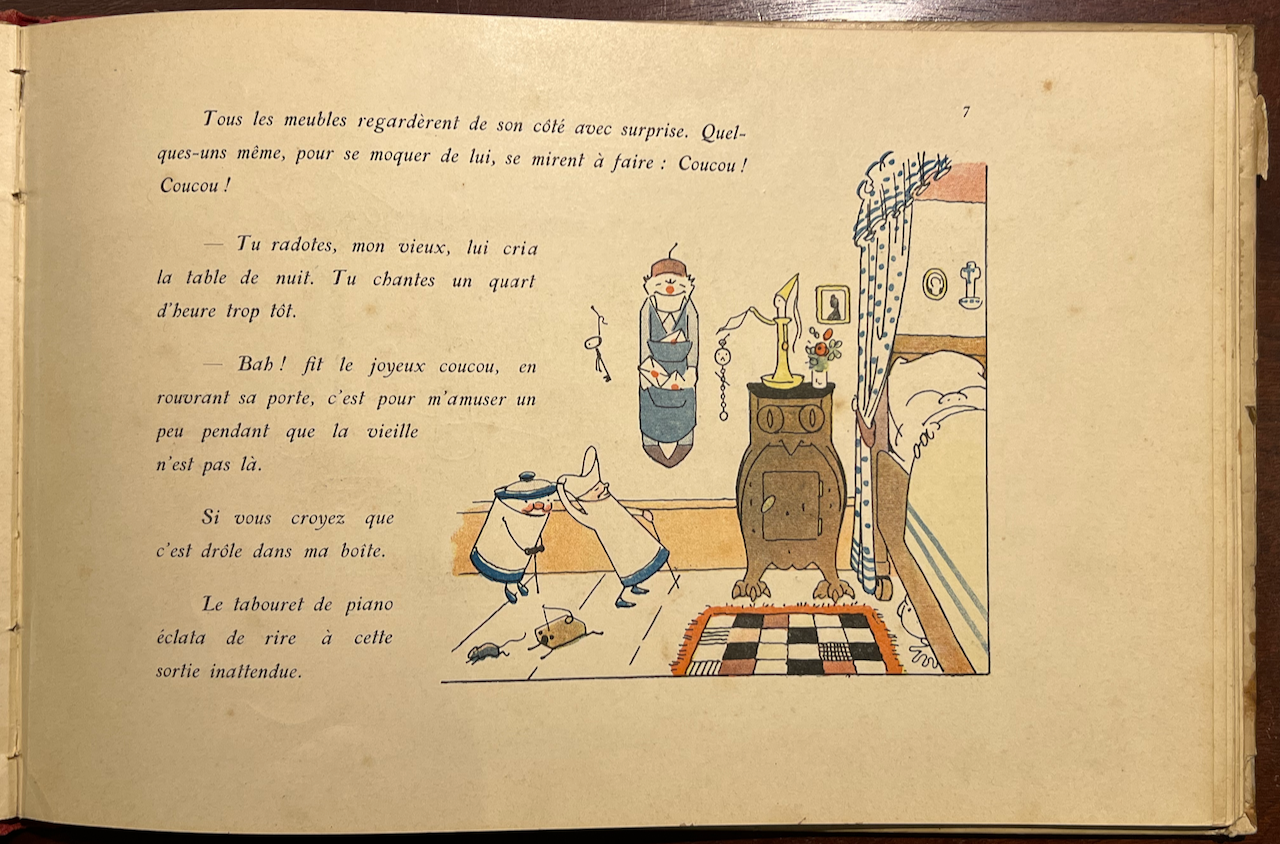 7
Tous les meubles regardèrent de son côté avec surprise. Quel-
ques-uns même, pour se moquer de lui, se mirent à faire : Coucou !
Coucou !
— Tu radotes, mon vieux, lui cria
la table de nuit. Tu chantes un quart
d'heure trop tôt.
— Bah ! fit le joyeux coucou, en
rouvrant sa porte, c'est pour m'amuser un
peu pendant que la vieille
n'est pas là.
Si vous croyez que
c'est drôle dans ma boîte.
Le tabouret de piano
éclata de rire à cette
sortie inattendue.